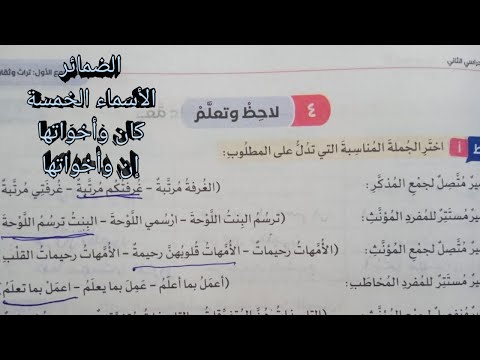 الضمائر
الأسماء الخمسة
كان وأخواتها
إن وأخواتها
دراسي الثاني
الأول: تراث وثقا
٤ لاحِظْ وتعلَّمْ
أ اخترِ الجُملةَ المُناسِبةَ التي تدُلُّ على المطلوبِ:
يرٌ مُتَّصِلٌ لجمْعِ المذكَّرِ: (الغُرفةُ مُرتَّبةٌ – غُرفتُكُم مُرتَّبةٌ – غُرفتِي مُرتَّبةٌ
يرٌ مُستَتِرٌ للمُفردِ المُؤنَّثِ: (ترسُمُ البِنتُ اللَّوْحةَ – ارْسُمي اللَّوْحةَ – البِنتُ ترسُمُ اللَّوْحةَ
يرٌ مُتَّصِلٌ لجمْعِ المُؤنَّثِ: (الأُمَّهاتُ رحيماتٌ – الأُمَّهاتُ قلوبُهنَّ رحيمةٌ – الأُمَّهاتُ رحيماتُ القلبِ
يرٌ مُستَتِرٌ للمُفردِ المخاطَبِ: (أعمَلُ بما أعلَمُ – عَمِلَ بما يعلَمُ – اعمَلْ بما تعلَمُ